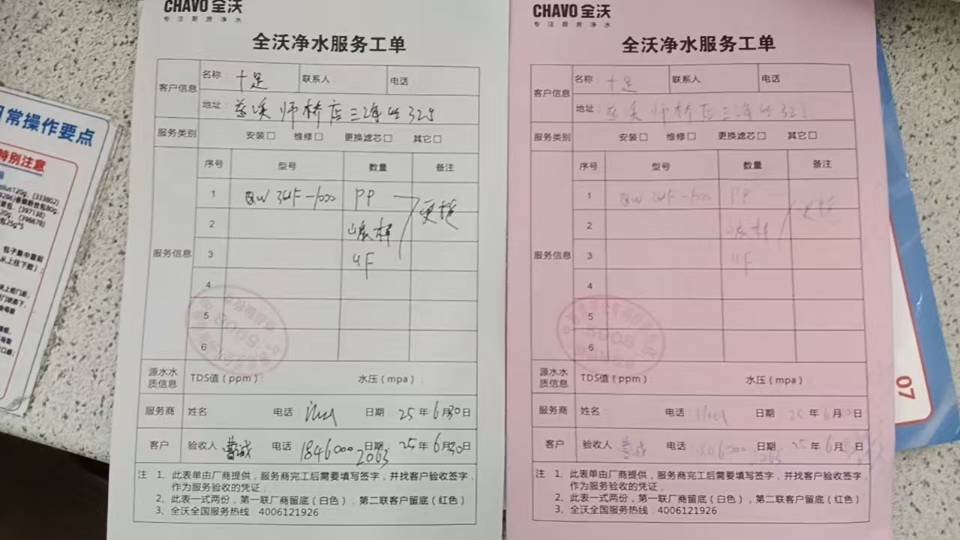 CHAVO 全沃
专注厨房净水
全沃净水服务工单
客户信息 名称: 十足 联系人: 电话
地址: 慈溪 师桥店三海线325
服务类别 安装□ 维修□ 更换滤芯□ 其它□
服务信息 序号 型号 数量 备注
1 QW 3UF-1000 PP 更换
2 碳棒
3 UF
4
5
6
源水水质信息 TDS值(ppm): 水压(mpa):
服务商 姓名 电话 日期 25年6月30日
客户 验收人 电话 18460002063 日期 25年6月30日
注 1、此表单由厂商提供,服务商完工后需要填写签字,并找客户验收签字
作为服务验收的凭证.
2、此表一式两份,第一联厂商留底(白色),第二联客户留底(红色)
3、全沃全国服务热线: 4006121926
CHAVO 全沃
专注厨房净水
全沃净水服务工单
客户信息 名称: 十足 联系人: 电话
地址: 慈溪 师桥店三海线325
服务类别 安装□ 维修□ 更换滤芯□ 其它□
服务信息 序号 型号 数量 备注
1 QW 3UF-1000 PP 更换
2 碳棒
3 UF
4
5
6
源水水质信息 TDS值(ppm): 水压(mpa):
服务商 姓名 电话 日期 25年6月30日
客户 验收人 电话 日期 25年6月30日
注 1、此表单由厂商提供,服务商完工后需要填写签字,并找客户验收签字
作为服务验收的凭证.
2、此表一式两份,第一联厂商留底(白色),第二联客户留底(红色)
3、全沃全国服务热线: 4006121926
常操作要点
特别注意
07